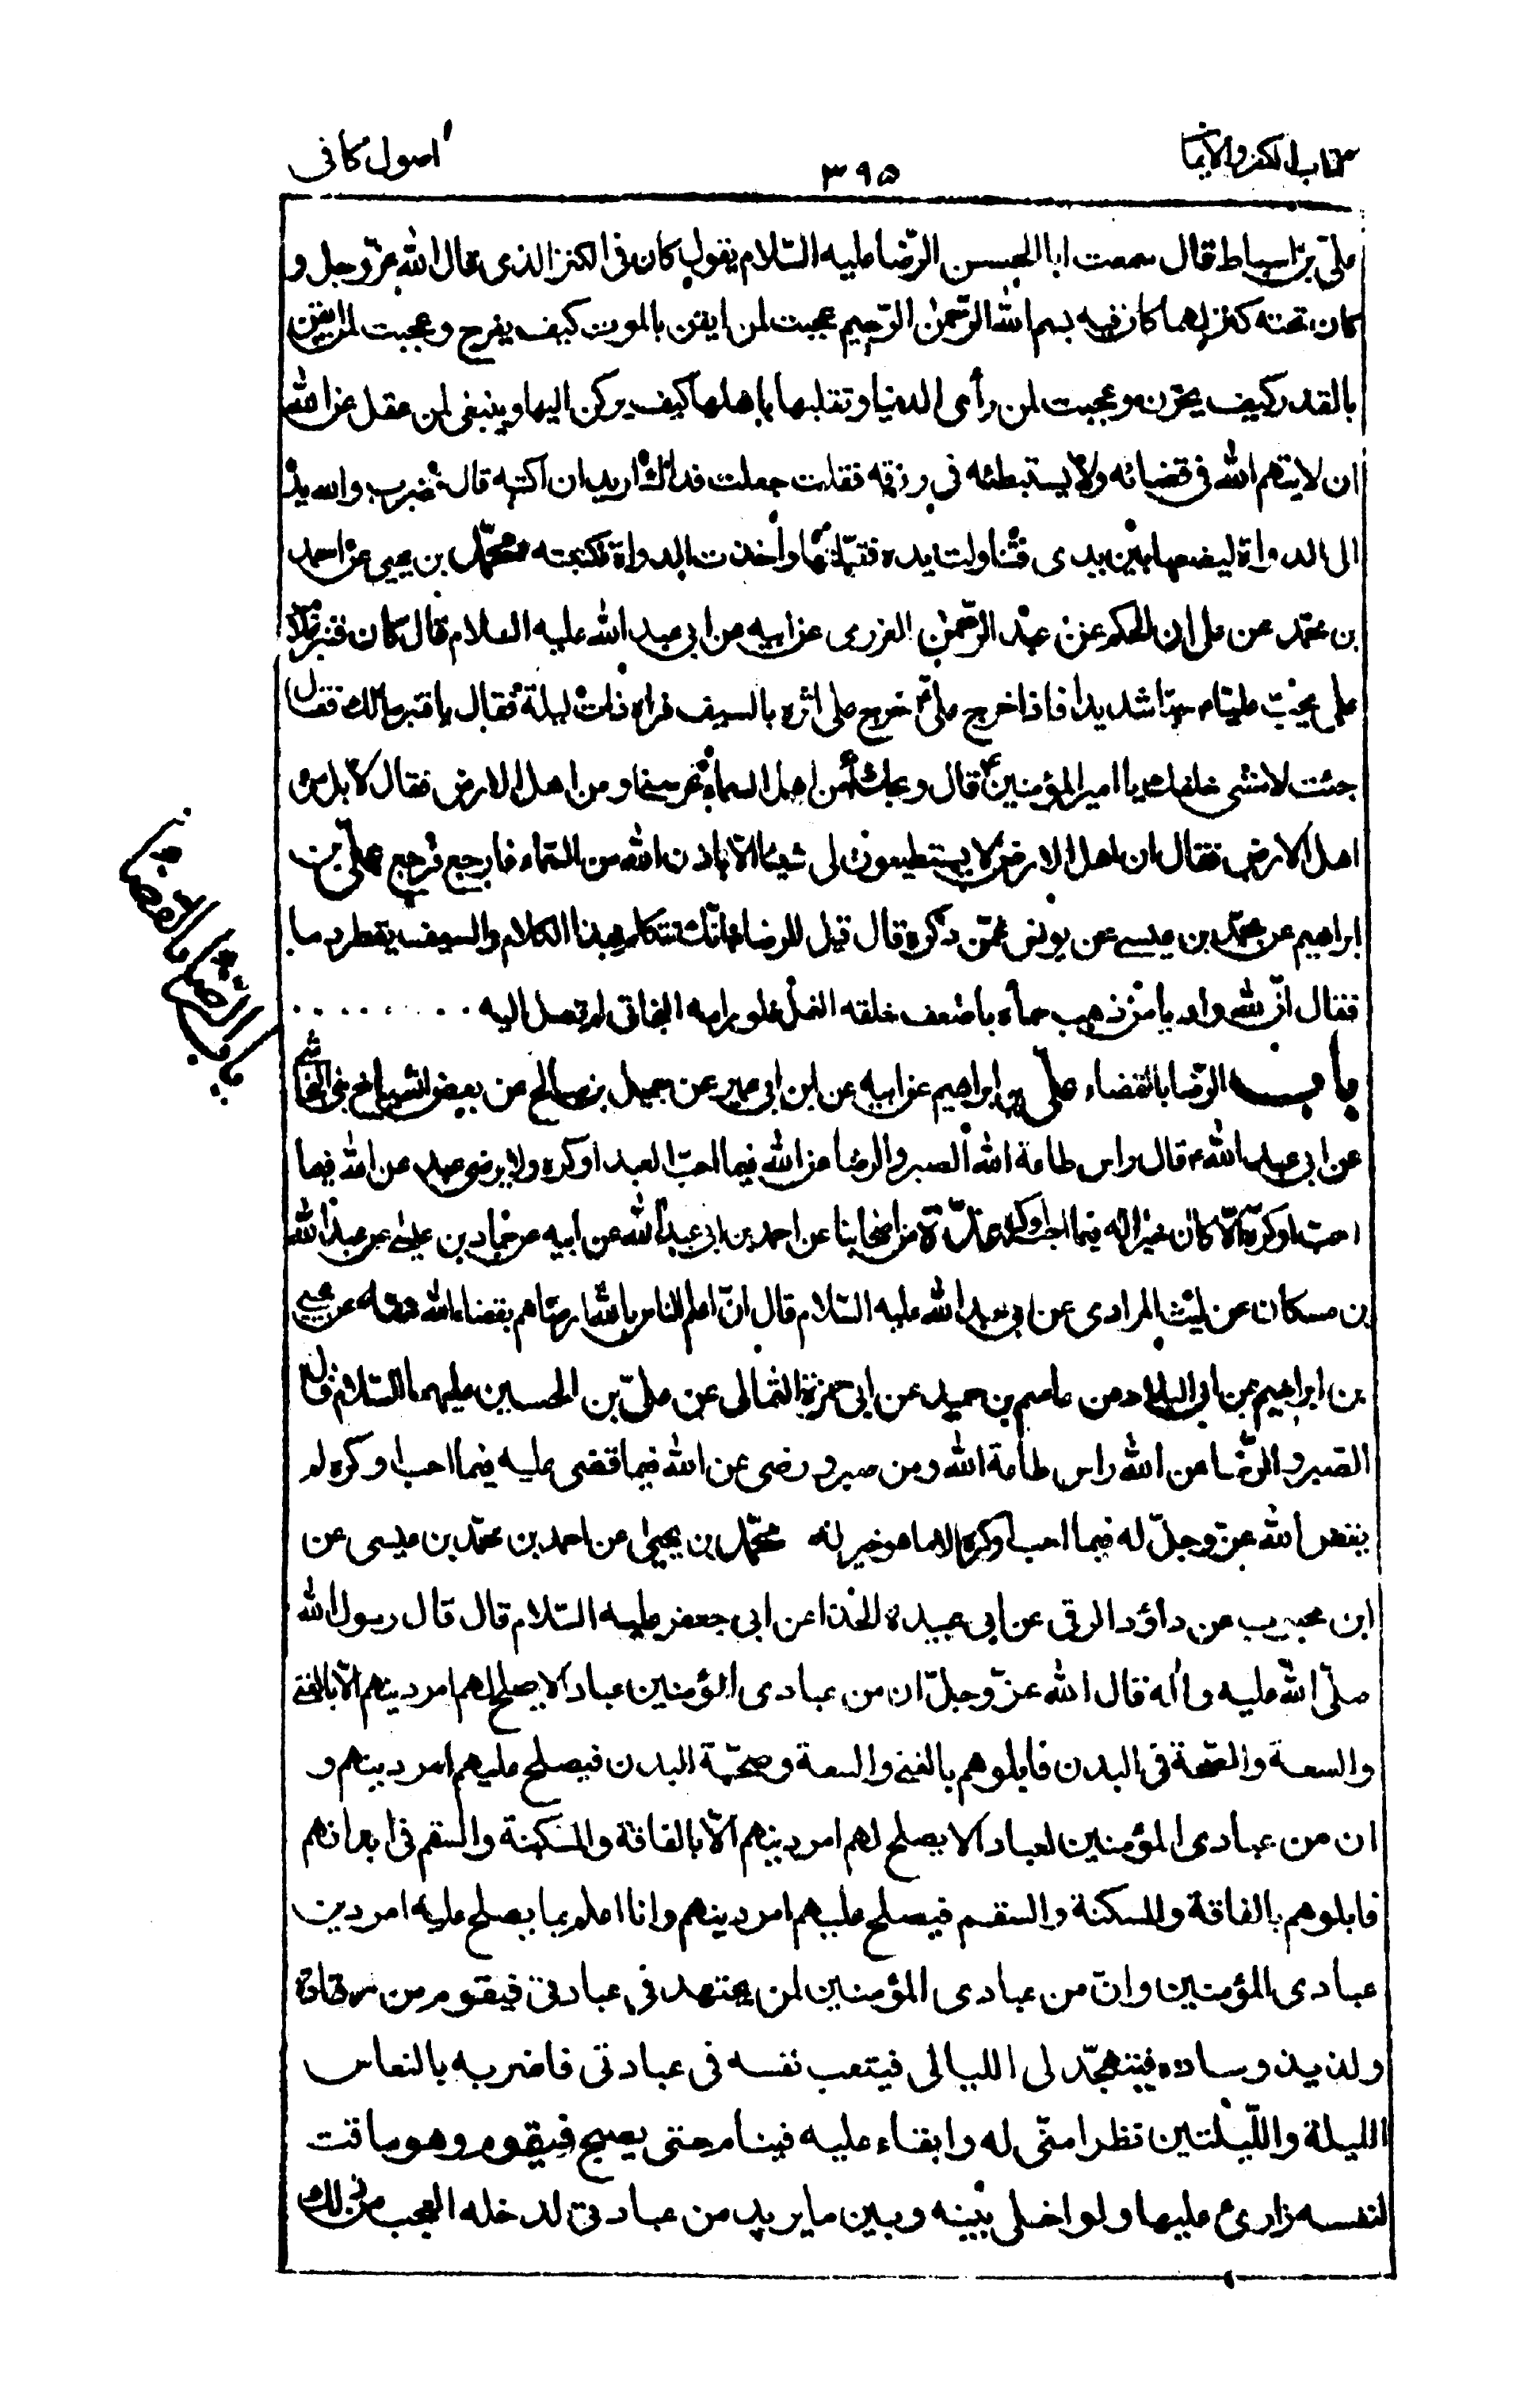 كتاب الكفر والايمان
٣٩٥
اصول كافى
على بن اسباط قال سمعت ابا الحسن الرّضا عليه السّلام يقول كان فى الكنز الذى قال الله عزّ وجل و
كان تحته كنز لهما كان فيه بسم الله الرّحمن الرّحيم عجبت لمن ايقن بالموت كيف يفرح وعجبت لمن ايقن
بالقدر كيف يحزن وعجبت لمن رأى الدنيا وتقلبها باهلها كيف يركن اليها وينبغى لمن عقل عن الله
ان لا يتهم الله فى قضائه ولا يستبطئه فى رزقه فقلت جعلت فداك اريد ان اكتبه قال فضرب والله يده
الى الدواة ليضعها بين يدى فتناولت يده فقبّلتها واخذت الدواة فكتبته محمّد بن يحيى عن احمد
بن محمّد عن على ابن الحكم عن عبد الرّحمن العزرمى عن ابيه عن ابى عبد الله عليه السلام قال كان قنبر غلام
على يحبّ عليّا ع حبّا شديدا فاذا خرج علىّ ع خرج على اثره بالسيف فراه ذات ليلة فقال يا قنبر مالك فقال
جئت لامشى خلفك يا امير المؤمنين ع قال ويحك أمن اهل السماء تحرسنى او من اهل الارض فقال لا بل من
اهل الارض فقال ان اهل الارض لا يستطيعون لى شيئا الّا باذن الله من السّماء فارجع فرجع علىّ بن
ابراهيم عن محمّد بن عيسى عن يونس عمّن ذكره قال قيل للرضا ع انّك تتكلم بهذا الكلام والسيف يقطر دما
فقال انّ لله واديا من ذهب حماه باضعف خلقه النمل فلو رامه البخاتى لم تصل اليه . . . . . . . . .
باب الرّضا بالقضاء علىّ بن ابراهيم عن ابيه عن ابن ابى عمير عن جميل بن صالح عن بعض اشياخ بنى النجاشى
عن ابى عبد الله ع قال راس طاعة الله الصبر والرضا عن الله فيما احبّ العبد او كره ولا يرضى عبد عن الله فيما
احبّ او كره الّا كان خيرا له فيما احبّ او كره عدّة من اصحابنا عن احمد بن ابى عبد الله عن ابيه عن حماد بن عيسى عن عبد الله
بن مسكان عن ليث المرادى عن ابى عبد الله عليه السّلام قال انّ اعلم الناس بالله ارضاهم بقضاء الله عنه عن يحيى
بن ابراهيم بن ابى البلاد عن عاصم بن حميد عن ابى حمزة الثمالى عن علىّ بن الحسين عليهما السّلام قال
الصبر والرّضا عن الله راس طاعة الله ومن صبر ورضى عن الله فيما قضى عليه فيما احب او كره لم
يقض الله عزّ وجلّ له فيما احب او كره الا ما هو خير له محمّد بن يحيى عن احمد بن محمّد بن عيسى عن
ابن محبوب عن داؤد الرقى عن ابى عبيدة الحذا عن ابى جعفر عليه السّلام قال قال رسول الله
صلّى الله عليه واله قال الله عزّ وجلّ ان من عبادى المؤمنين عبادا لا يصلح لهم امر دينهم الّا بالغنى
والسعة والصّحة فى البدن فابلوهم بالغنى والسعة وصحّة البدن فيصلح عليهم امر دينهم و
ان من عبادى المؤمنين لعبادا لا يصلح لهم امر دينهم الّا بالفاقة والمسكنة والسقم فى ابدانهم
فابلوهم بالفاقة والمسكنة والسقم فيصلح عليهم امر دينهم وانا اعلم بما يصلح عليه امر دين
عبادى المؤمنين وانّ من عبادى المؤمنين لمن يجتهد فى عبادتى فيقوم من رقاده
ولذيذ وساده فيتهجّد لى الليالى فيتعب نفسه فى عبادتى فاضربه بالنعاس
الليلة واللّيلتين نظرا منّى له وابقاء عليه فينام حتى يصبح فيقوم وهو ماقت
لنفسه زارئ عليها ولو اخلى بينه وبين ما يريد من عبادتى لدخله العجب من ذلك
باب الرّضا بالقضاء